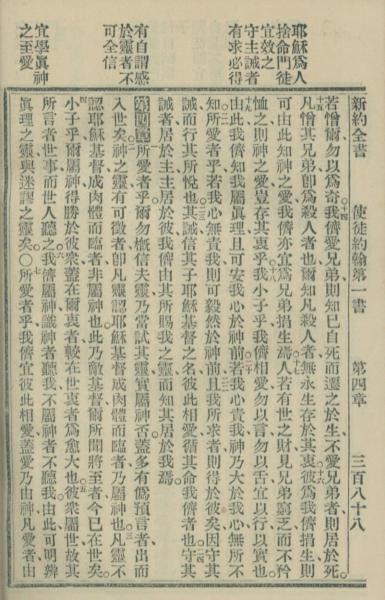 新約全書 使徒約翰第一書 第四章 三百八十八
耶穌爲人
捨命門徒
宜效之
守主誡者
有求必得
有自謂感
於靈者不
可全信
宜學眞神
之至愛
若憎爾勿以爲奇我儕愛兄弟則知已自死而遷之於生不愛兄弟者則居於死
凡憎其兄弟卽爲殺人者也爾知凡殺人者無永生存於其衷彼爲我儕捐生則
可由此知神之愛我儕亦宜爲兄弟捐生焉人若有世之財見兄弟窮乏而不矜
恤之則神之愛豈存其衷乎我小子乎我儕相愛勿以言勿以舌宜以行以實也
由此我儕知我屬眞理且可安我心於神前若我心責我神乃大於我心無所不
知所愛者乎若我心無責我則可毅然於神前且我所求者則得於彼矣因守其
誡而行其所悅也其誡信其子耶穌基督之名彼此相愛循其命我儕者也守其
誡者居於主主居於彼我儕由其所賜我之靈而知其居於我焉
第四章所愛者乎爾勿槪信夫靈乃當試其靈實屬神否蓋多有僞預言者出而
入世矣神之靈有可徵者卽凡靈認耶穌基督成肉體而臨者乃屬神也凡靈不
認耶穌基督成肉體而臨者非屬神也此乃敵基督爾所聞將至者今已在世矣
小子乎爾屬神得勝於彼衆蓋在爾衷者較在世衷者爲愈大也彼衆屬世故其
所言者世事而世人聽之我儕屬神識神者聽我不屬神者不聽我由此可明辨
眞理之靈與迷謬之靈矣○所愛者乎我儕宜彼此相愛蓋愛乃由神凡愛者由